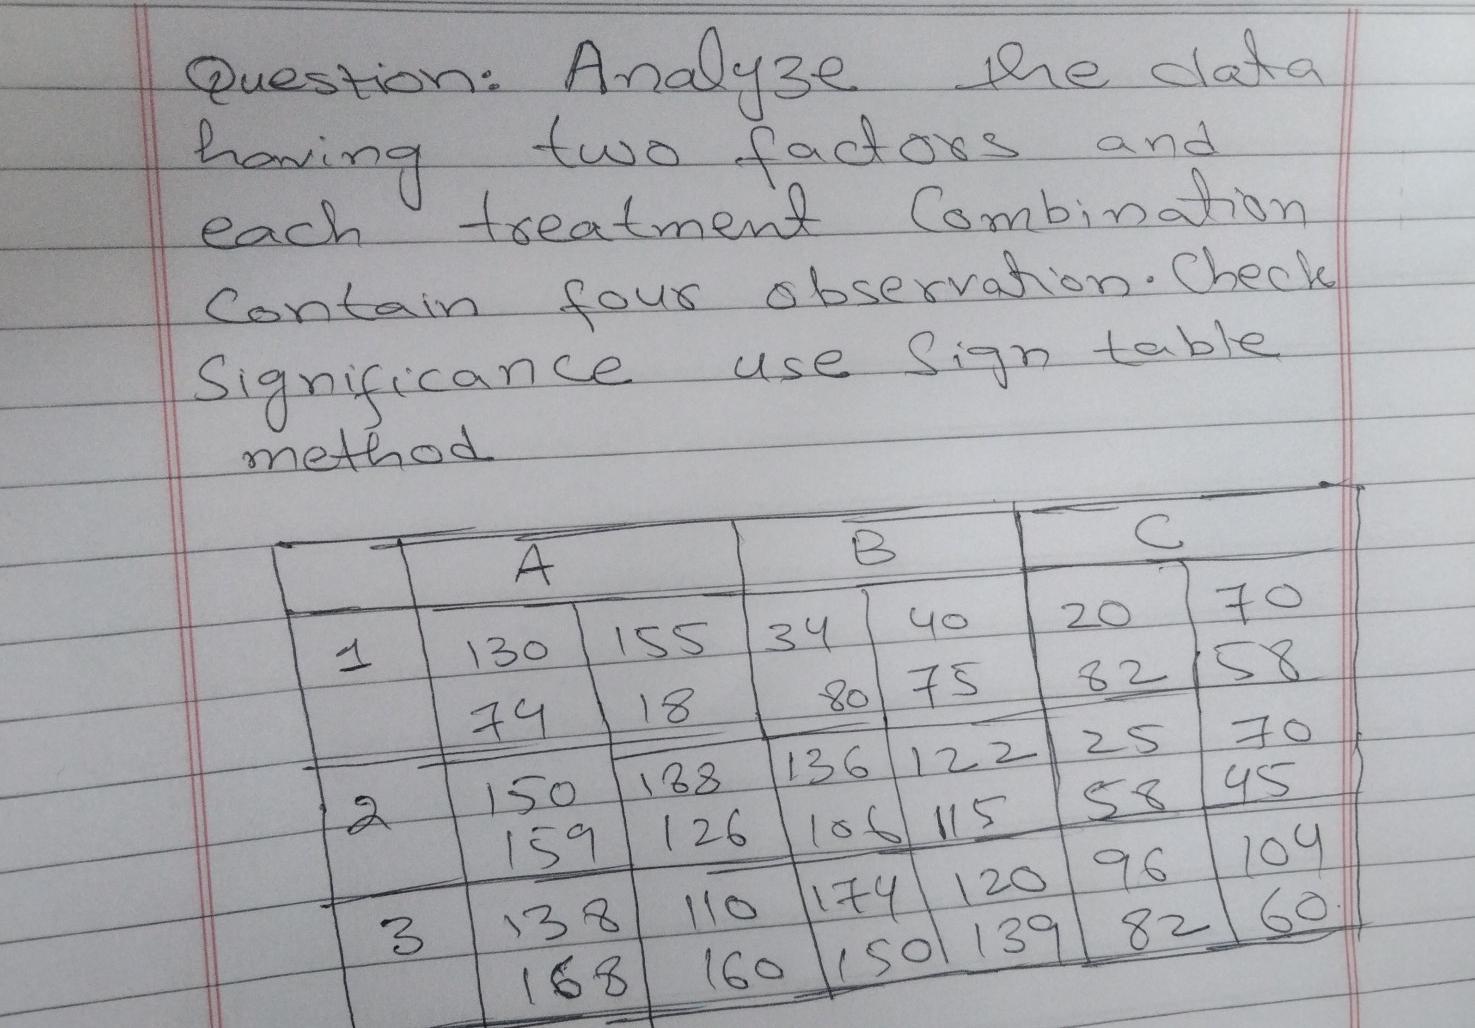 Question: Analyze the data
having two factors and
each treatment Combination
Contain four observation. Check
Significance use Sign table
method
A B C
1 130 155 34 40 20 70
74 18 80 75 82 58
2 150 188 136 122 25 70
159 126 106 115 58 45
3 138 110 174 120 96 104
168 160 150 139 82 60